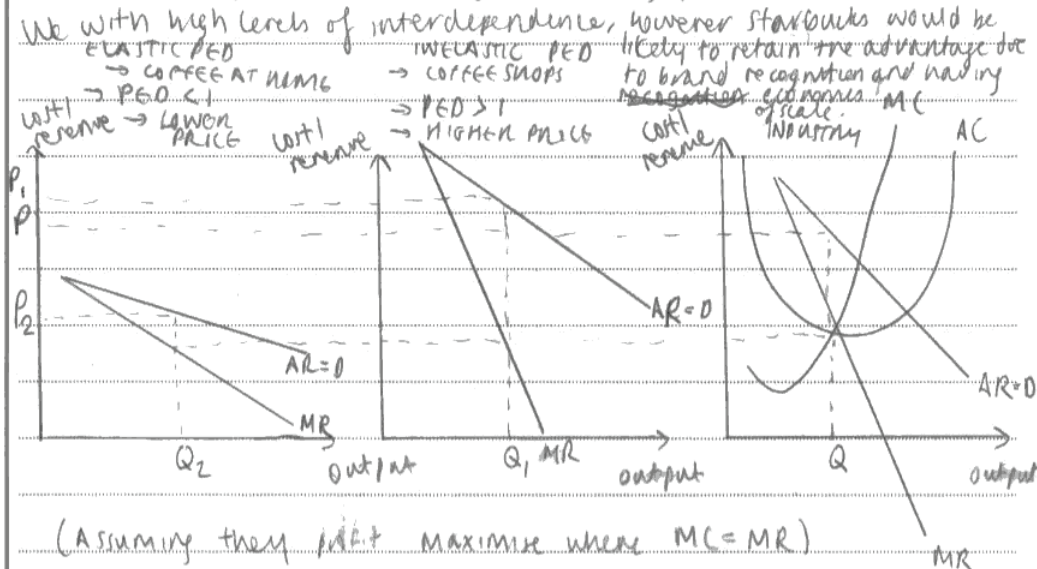 We with high levels of interdependence, however Starbucks would be
likely to retain the advantage due
to brand recognition and having
recognition economies
of scale.
ELASTIC PED
→ COFFEE AT HOME
→ PED < 1
→ LOWER
PRICE
INELASTIC PED
→ COFFEE SHOPS
→ PED > 1
→ HIGHER PRICE
INDUSTRY
cost/
revenue
P₁
P
P₂
AR=D
MR
Q₂
output
cost/
revenue
AR=D
Q₁ MR
output
cost/
revenue
MC
AC
AR=D
Q
output
MR
(Assuming they profit maximise where MC=MR)